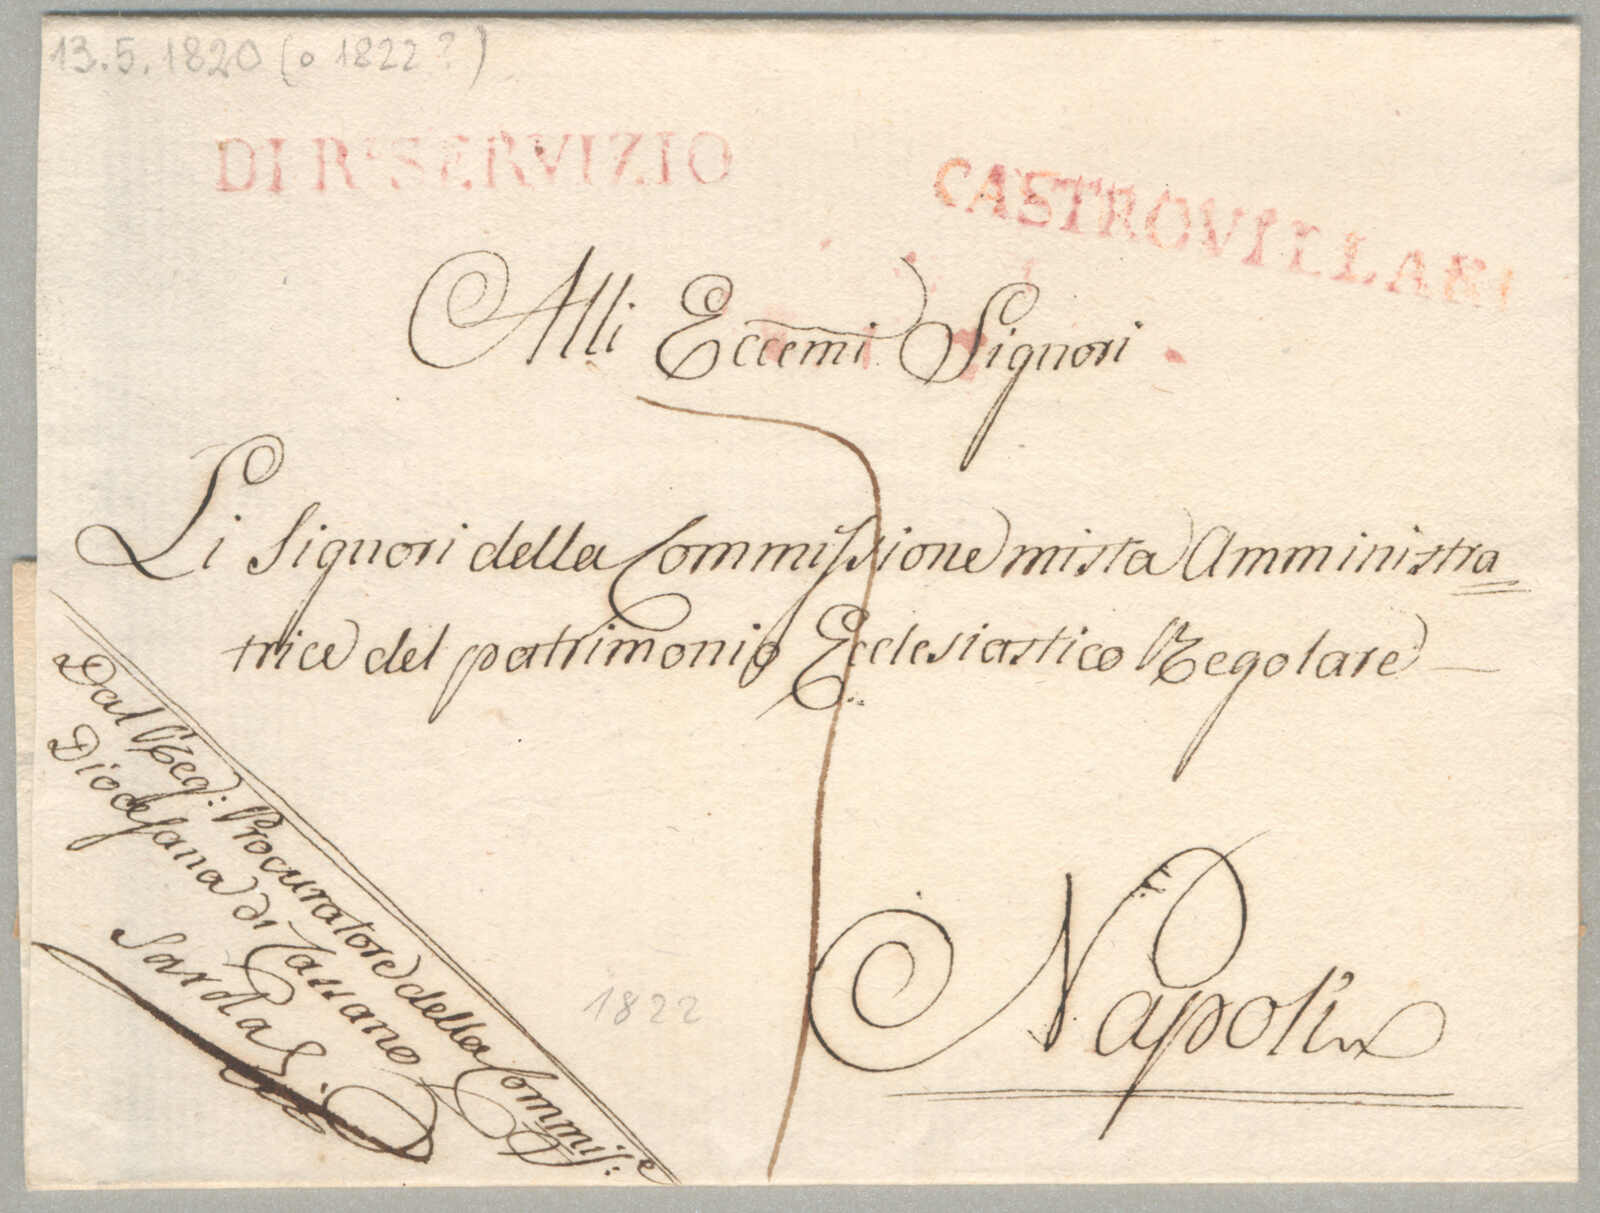 13.5.1820 (o 1822?)
DI Rl SERVIZIO
CASTROVILLARI
Alli Eccemi Signori
Li Signori della Commissione mista Amministra
trice del patrimonio Ecclesiastico Regolare
Dal Reg: Procuratore della Commis:e
Diocesana di Cassano
1822
Napoli